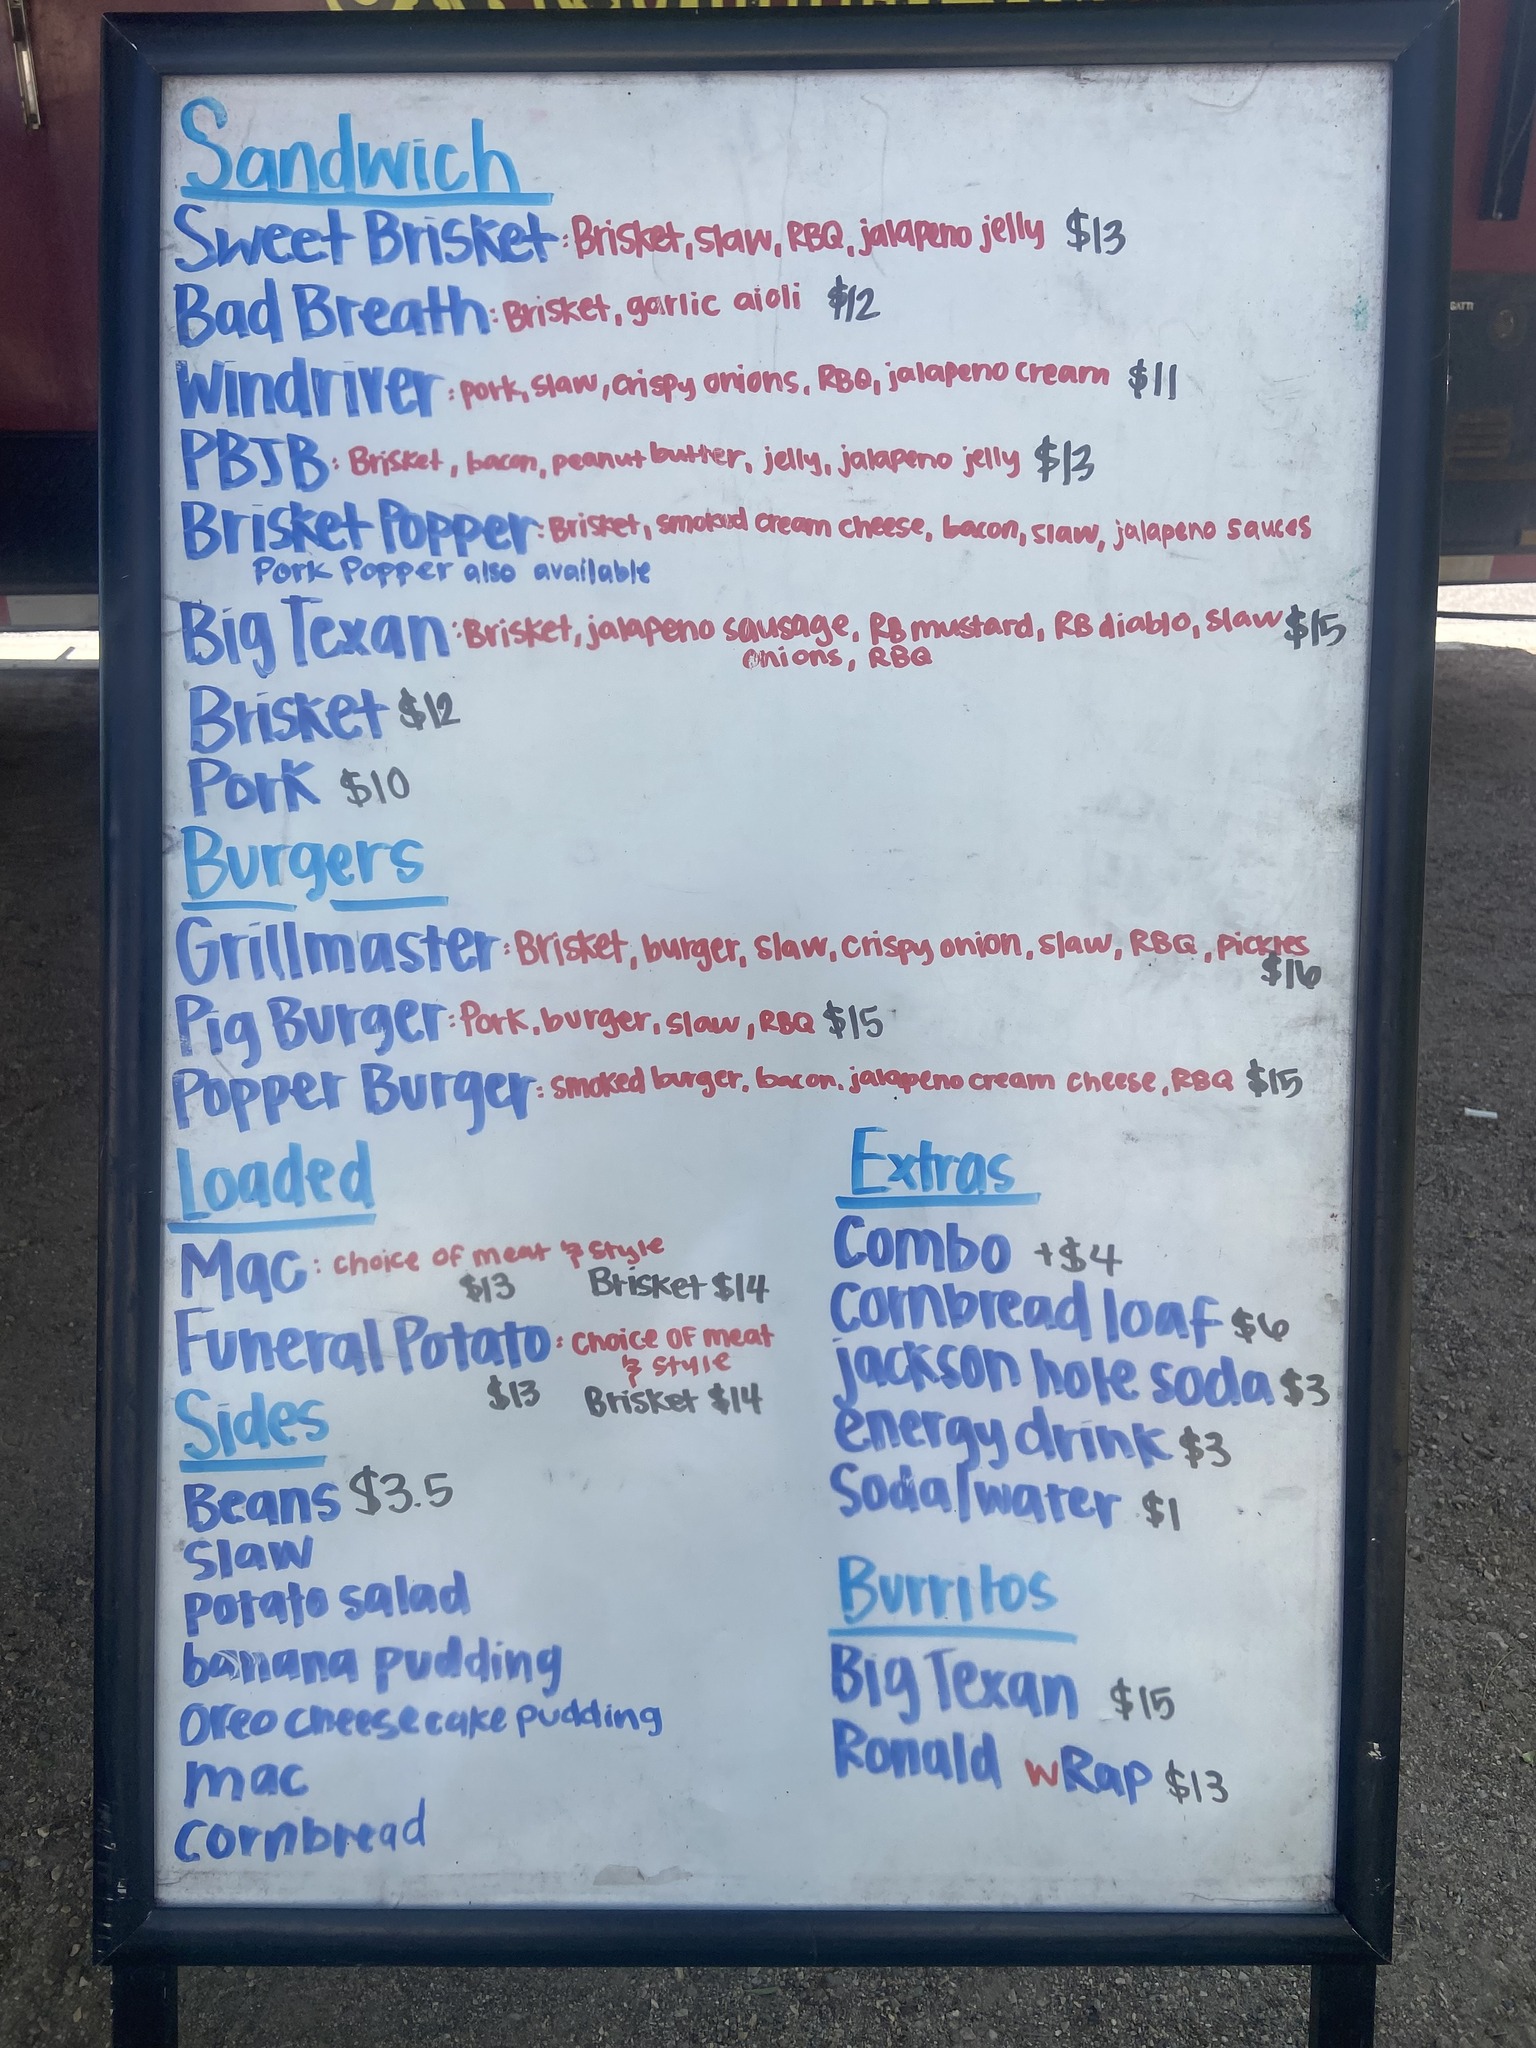 Sandwich
Sweet Brisket: Brisket, slaw, RBQ, jalapeno jelly $13
Bad Breath: Brisket, garlic aioli $12
Windriver: pork, slaw, crispy onions, RBQ, jalapeno cream $11
PBJB: Brisket, bacon, peanut butter, jelly, jalapeno jelly $13
Brisket Popper: Brisket, smoked cream cheese, bacon, slaw, jalapeno sauces
Pork Popper also available
Big Texan: Brisket, jalapeno sausage, RB mustard, RB diablo, slaw $15
onions, RBQ
Brisket $12
Pork $10
Burgers
Grillmaster: Brisket, burger, slaw, crispy onion, slaw, RBQ, pickles
$16
Pig Burger: Pork, burger, slaw, RBQ $15
Popper Burger: smoked burger, bacon, jalapeno cream cheese, RBQ $15
Loaded
Mac: choice of meat & style
$13 Brisket $14
Funeral Potato: choice of meat
& style
$13 Brisket $14
Sides
Beans $3.5
slaw
potato salad
banana pudding
oreo cheesecake pudding
mac
cornbread
Extras
Combo +$4
Cornbread loaf $6
jackson hole soda $3
energy drink $3
Soda/water $1
Burritos
Big Texan $15
Ronald wRap $13